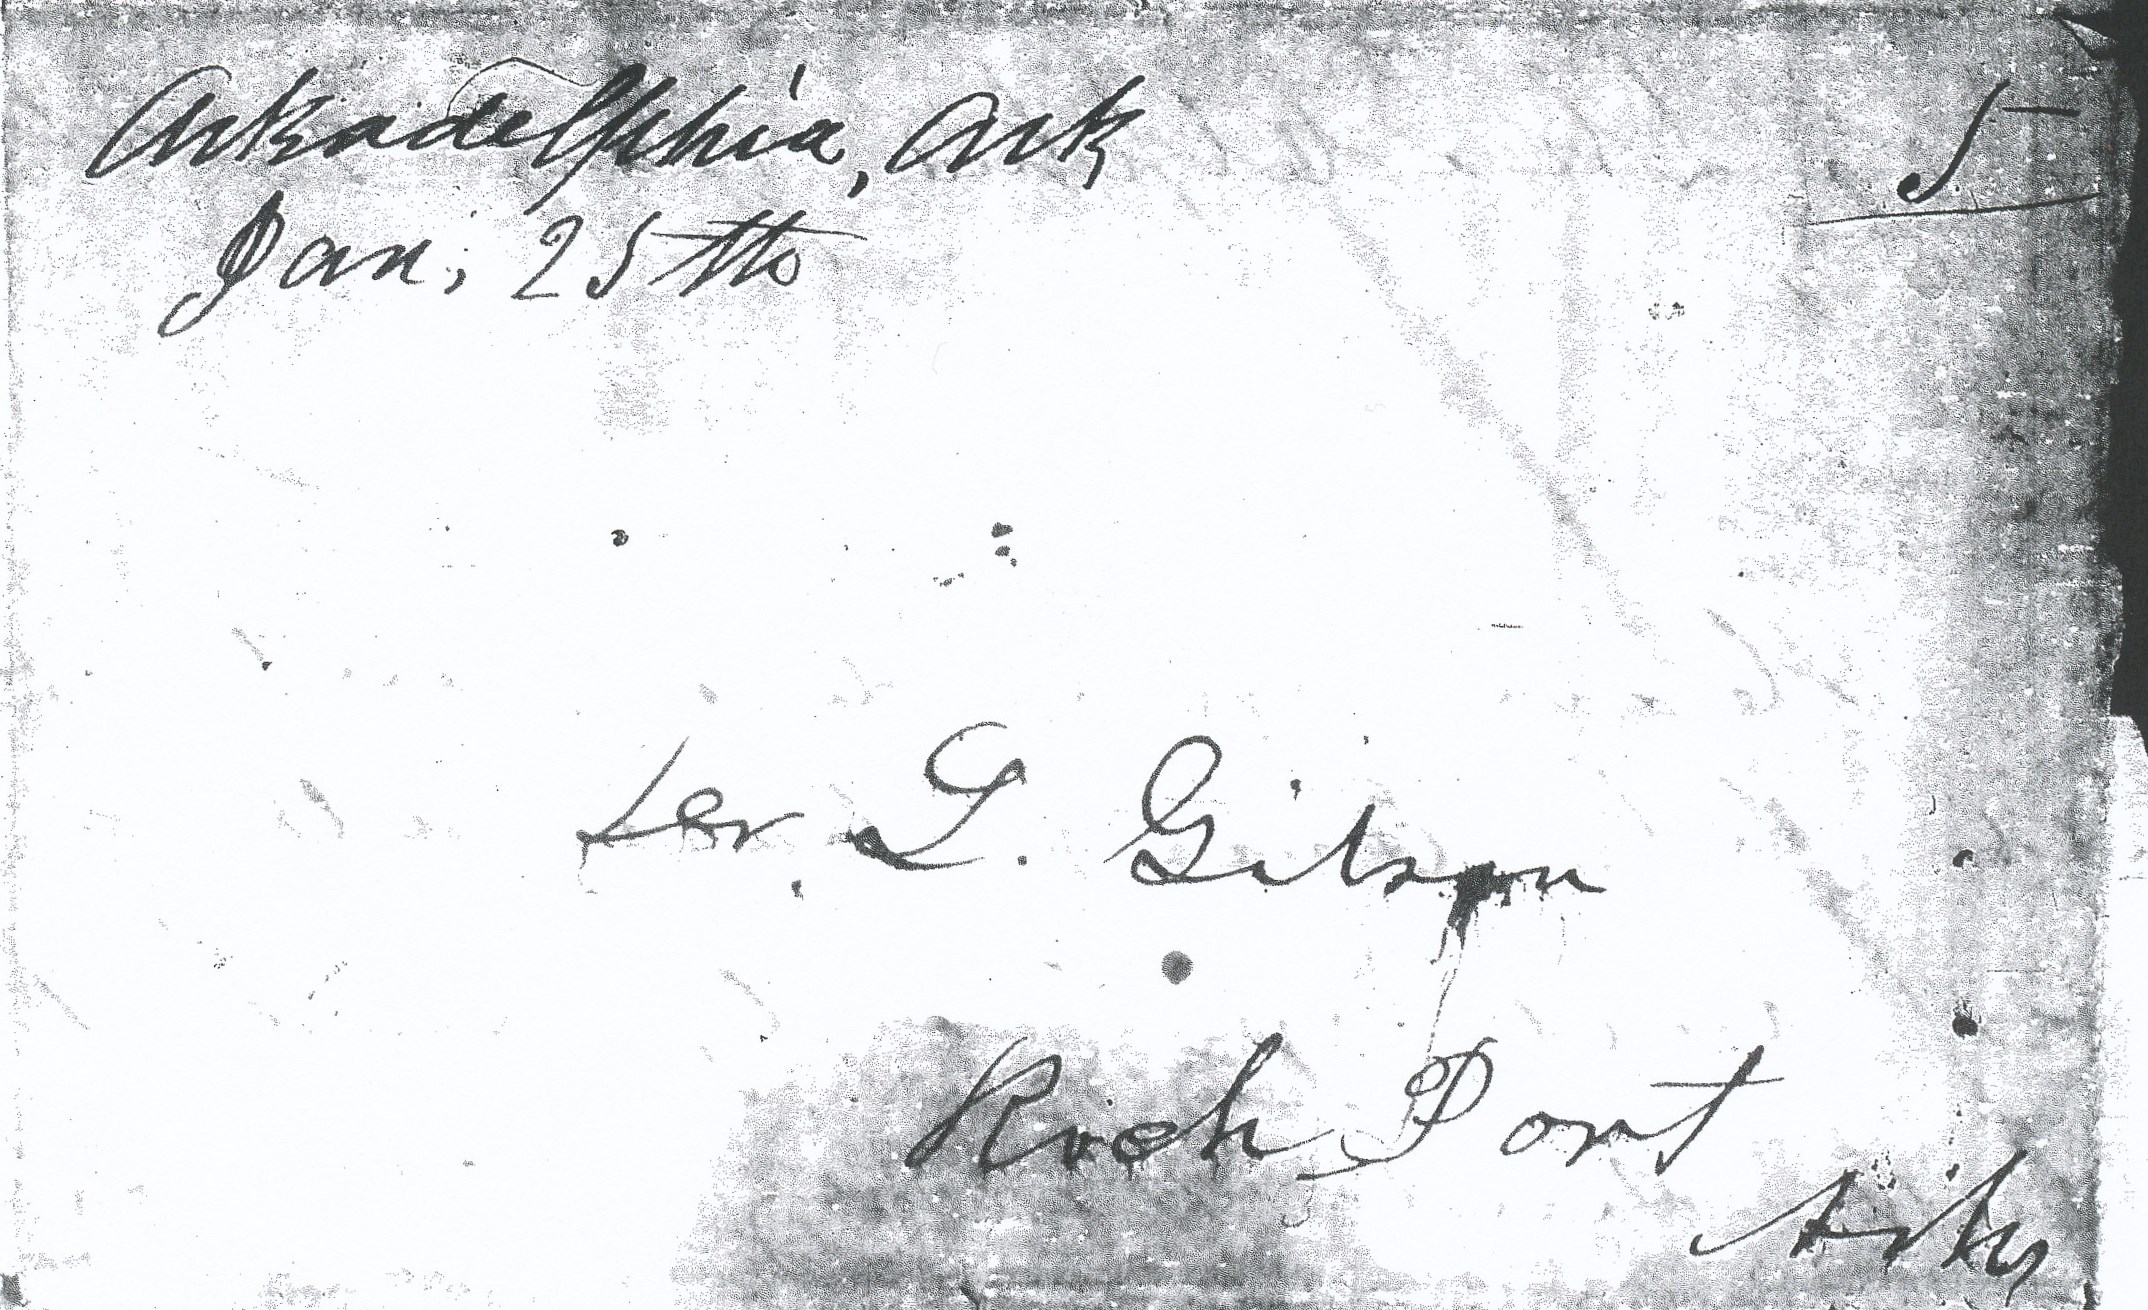 Arkadelphia, Ark, 5
Jan; 25th
L. Gibson
Rock Port
Ark,